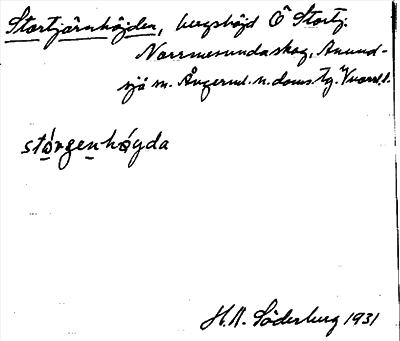 Stortjärnhöjden, bergshöjd Ö Stortj.
Norrmesundaskog, Anund-
sjö m. Ångerml. n. doms. tg.
stǫ́rgenhǫ́gda
H. A. Söderberg 1931